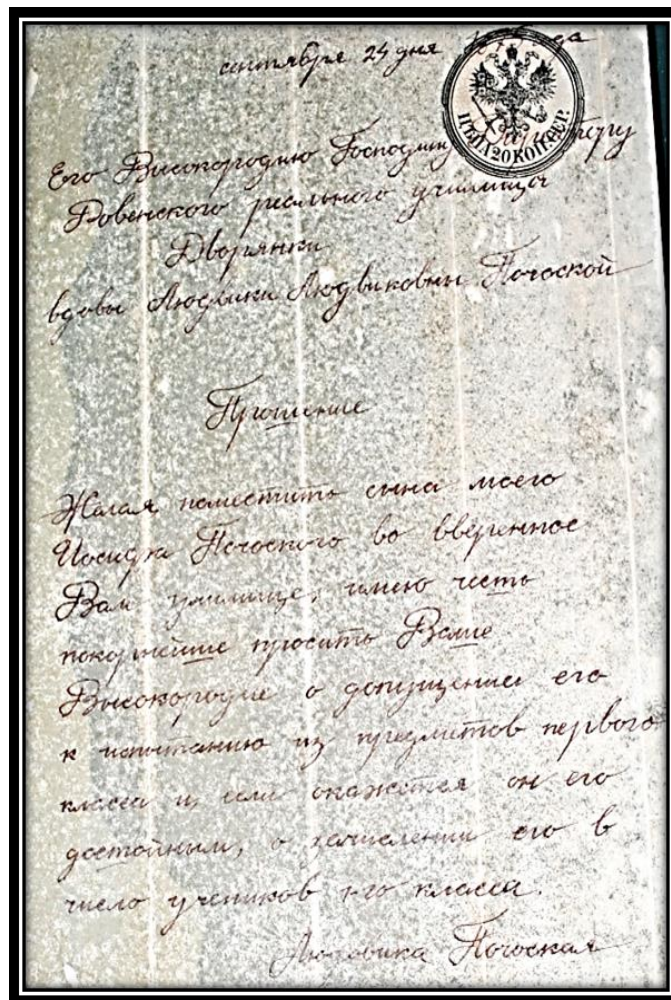 сентября 24 дня года
ЦѢНА 20 КОП. СЕР.
Его Высокородию Господину Директору
Ровенского реального училища
Дворянки
вдовы Людвики Людвиковны Почоской
Прошение
Желая поместить сына моего
Иосифа Почоского во вверенное
Вам училище, имею честь
покорнейше просить Ваше
Высокородие о допущении его
к испытанию из предметов первого
класса и, если окажется он его
достойным, о зачислении его в
число учеников 1-го класса.
Людовика Почоская